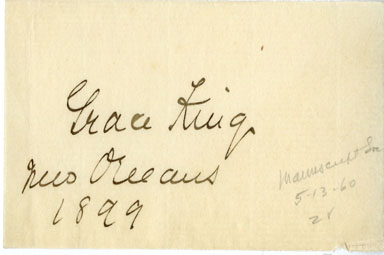 Grace King
New Orleans
1899
Manuscript
5-13-60